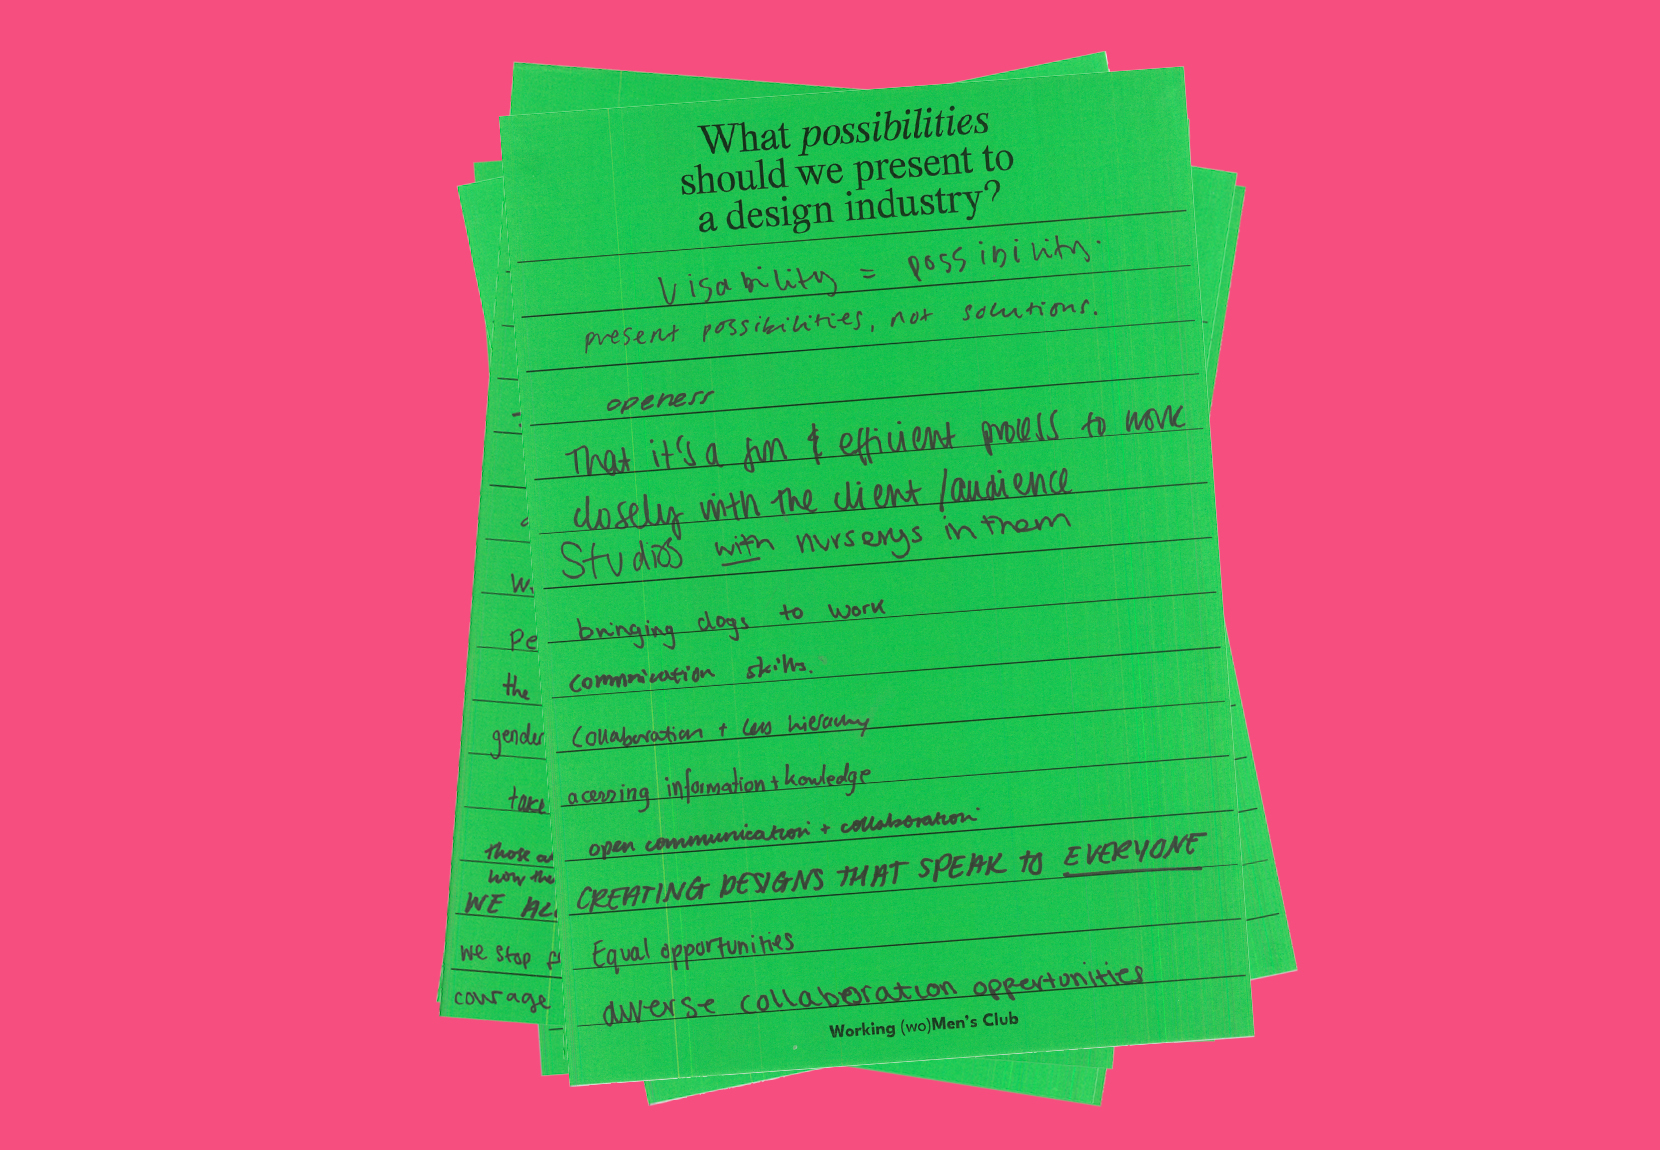 What possibilities
should we present to
a design industry?
Visability = possibility.
present possibilities, not solutions.
openess
That it's a fun & efficient process to work
closely with the client / audience
Studios with nurserys in them
bringing dogs to work
communication skills.
Collaboration + less hierachy
acessing information + kowledge
open communication + collaboration
CREATING DESIGNS THAT SPEAK TO EVERYONE
Equal opportunities
diverse collaboration oppertunities
Working (wo)Men's Club
Pe
the
gender
take
those
how the
WE
we stop
courage